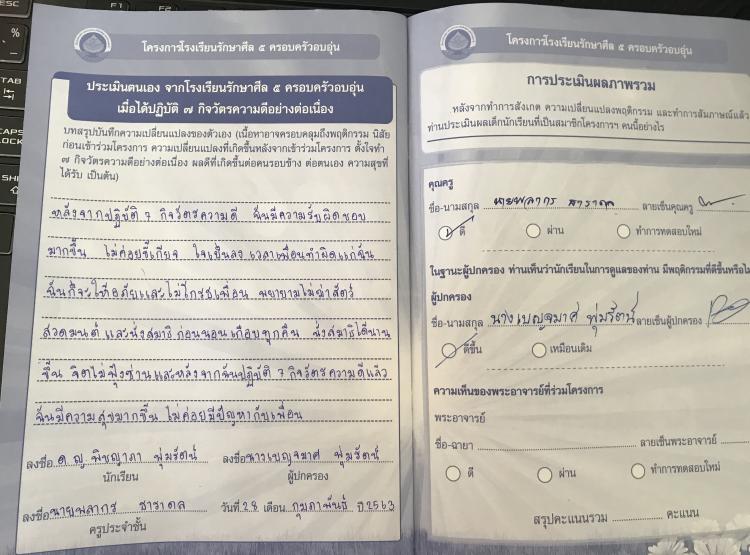 โครงการโรงเรียนรักษาศีล ๕ ครอบครัวอบอุ่น
ประเมินตนเอง จากโรงเรียนรักษาศีล ๕ ครอบครัวอบอุ่น
เมื่อได้ปฏิบัติ ๗ กิจวัตรความดีอย่างต่อเนื่อง
บทสรุปบันทึกความเปลี่ยนแปลงของตัวเอง (เนื้อหาอาจครอบคลุมถึงพฤติกรรม นิสัย
ก่อนเข้าร่วมโครงการ ความเปลี่ยนแปลงที่เกิดขึ้นหลังจากเข้าร่วมโครงการ ตั้งใจทำ
๗ กิจวัตรความดีอย่างต่อเนื่อง ผลดีที่เกิดขึ้นต่อคนรอบข้าง ต่อตนเอง ความสุขที่
ได้รับ เป็นต้น)
หลังจากปฏิบัติ 7 กิจวัตรความดี ฉันมีความรับผิดชอบ
มากขึ้น ไม่ค่อยขี้เกียจ ใจเย็นลง เวลาเพื่อนทำผิดแก่ฉัน
ฉันก็จะให้อภัยและไม่โกรธเพื่อน พยายามไม่ฆ่าสัตว์
สวดมนต์ และนั่งสมาธิ ก่อนนอนเกือบทุกคืน นั่งสมาธิได้นาน
ขึ้น จิตไม่ฟุ้งซ่านและหลังจากฉันปฏิบัติ 7 กิจวัตรความดีแล้ว
ฉันมีความสุขมากขึ้น ไม่ค่อยมีปัญหากับเพื่อน
ลงชื่อ ด.ญ. พิชญาภา พุ่มรัตน์ ลงชื่อ นางเบญจมาศ พุ่มรัตน์
นักเรียน ผู้ปกครอง
ลงชื่อ นายพลากร ธาราดล วันที่ 28 เดือน กุมภาพันธ์ ปี 2563
ครูประจำชั้น
โครงการโรงเรียนรักษาศีล ๕ ครอบครัวอบอุ่น
การประเมินผลภาพรวม
หลังจากทำการสังเกต ความเปลี่ยนแปลงพฤติกรรม และทำการสัมภาษณ์แล้ว
ท่านประเมินผลเด็กนักเรียนที่เป็นสมาชิกโครงการฯ คนนี้อย่างไร
คุณครู
ชื่อ-นามสกุล นายพลากร ธาราดล ลายเซ็นคุณครู
ดี ผ่าน ทำการทดสอบใหม่
ในฐานะผู้ปกครอง ท่านเห็นว่านักเรียนในการดูแลของท่าน มีพฤติกรรมที่ดีขึ้นหรือไม่
ผู้ปกครอง
ชื่อ-นามสกุล นางเบญจมาศ พุ่มรัตน์ ลายเซ็นผู้ปกครอง
ดีขึ้น เหมือนเดิม
ความเห็นของพระอาจารย์ที่ร่วมโครงการ
พระอาจารย์
ชื่อ-ฉายา ลายเซ็นพระอาจารย์
ดี ผ่าน ทำการทดสอบใหม่
สรุปคะแนนรวม คะแนน